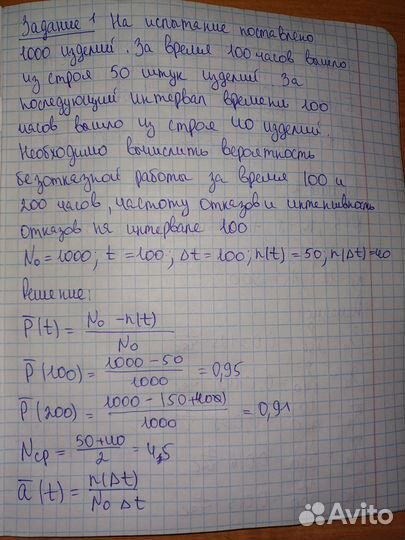 Задание 1 На испытание поставлено
1000 изделий. За время 100 часов вышло
из строя 50 штук изделий. За
последующий интервал времени 100
часов вышло из строя 40 изделий.
Необходимо вычислить вероятность
безотказной работы за время 100 и
200 часов, частоту отказов и интенсивность
отказов на интервале 100
N₀ = 1000; t = 100; Δt = 100; n(t) = 50; n(Δt) = 40
Решение:
P̅(t) = (N₀ - n(t)) / N₀
P̅(100) = (1000 - 50) / 1000 = 0,95
P̅(200) = (1000 - (50+40)) / 1000 = 0,91
Nср = (50+40) / 2 = 45
a̅(t) = n(Δt) / N₀ Δt
Avito